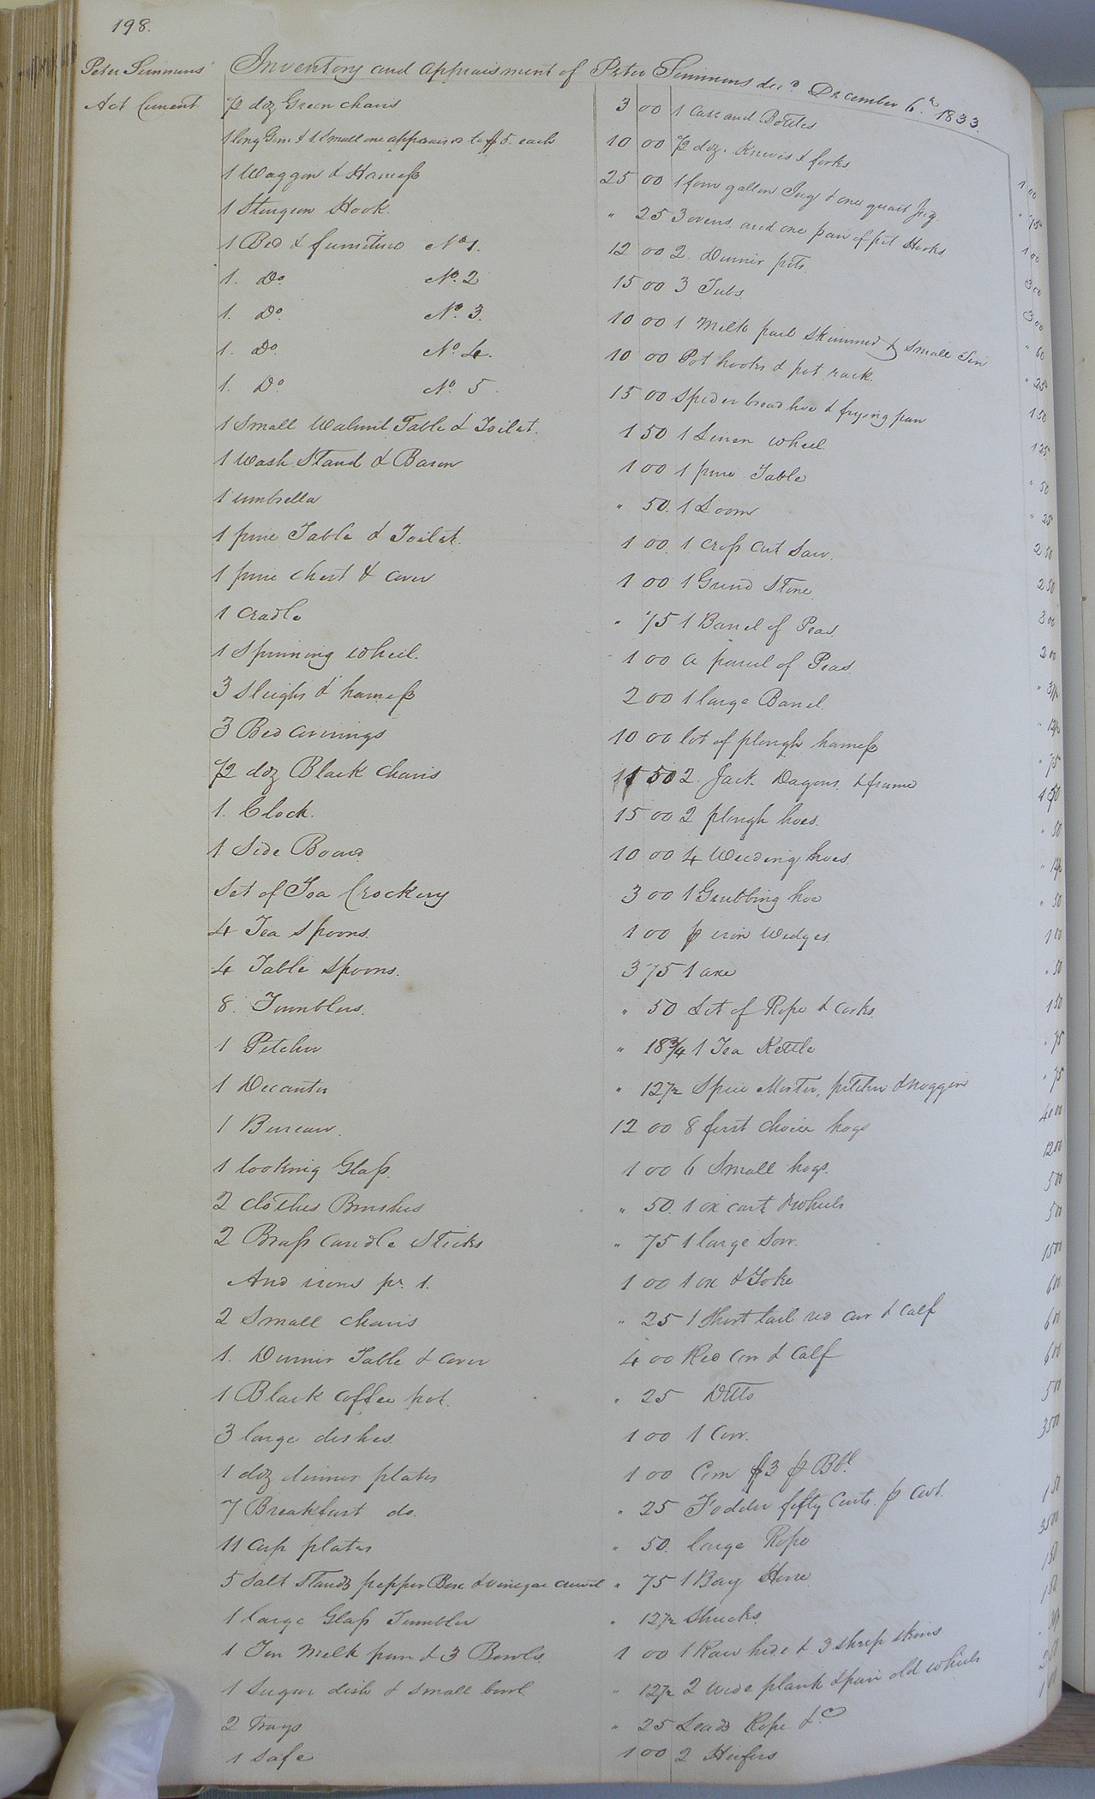 198.
Peter Simmons'
Act Current
Inventory and Appraisment of Peter Simmons dec.d December 6th 1833.
1/2 doz Green chairs 3 00
1 long Gun & 1 Small one appraised to $5. each 10 00
1 Waggon & Harness 25 00
1 Sturgeon Hook. " 25
1 Bed & furniture No 1. 12 00
1. Do. No. 2 15 00
1. Do. No. 3. 10 00
1. Do. No 4. 10 00
1. Do. No. 5. 15 00
1 Small Walnut Table & Toilet. 1 50
1 Wash Stand & Bason 1 00
1 umbrella " 50
1 pine Table & Toilet. 1 00
1 pine chest & cover 1 00
1 Cradle " 75
1 Spinning wheel. 1 00
3 Sleighs & harness 2 00
3 Bed coverings 10 00
1/2 doz Black chairs 50
1. Clock. 15 00
1 Side Board 10 00
Set of Tea Crockery 3 00
4 Tea Spoons. 1 00
4 Table Spoons. 3 75
8. Tumblers. " 50
1 Pitcher " 18 3/4
1 Decanter " 12 1/2
1 Bureau. 12 00
1 looking Glass. 1 00
2 clothes Brushes " 50
2 Brass candle Sticks " 75
And irons pr. 1. 1 00
2 Small chairs " 25
1. Dinner Table & cover 4 00
1 Black coffee pot. " 25
3 large dishes. 1 00
1 doz dinner plates 1 00
7 Breakfast do. " 25
11 Cup plates " 50
5 Salt Stands pepper Box & vinegar cruet " 75
1 large Glass Tumbler " 12 1/2
1 Tin Milk pan & 3 Bowls. 1 00
1 Sugar dish & small bowl " 12 1/2
2 Trays " 25
1 Safe 1 00
1 Case and Bottles 1 00
1/2 doz. Knives & forks " 75
1 four gallon Jug & one quart Jug 1 00
3 ovens and one pair of pot Hooks 3 00
2. Dinner pots 3 00
3 Tubs " 60
1 Milk pail Skimmer & Small Tin " 25
Pot hooks & pot rack. 1 50
Spider bread hoe & frying pan 1 25
1 Linen wheel " 50
1 pine Table " 25
1 Loom 2 50
1 Cross Cut Saw. 2 50
1 Grind Stone. 3 00
1 Barrel of Peas 2 00
a parcel of Peas
1 large Barrel.
lot of plough harness " 75
2. Jack. Wagons & frame
2 plough hoes. " 50
4 Weeding hoes
1 Grubbing hoe " 50
iron Wedges 1 00
1 axe " 50
Lot of Rope & corks. 1 50
1 Tea Kettle " 75
Spice Morter, pitcher & noggin " 75
8 first choice hogs 40 00
6 Small hogs. 12 00
1 ox cart & wheels 5 00
1 large Sow. 5 00
1 ox & Yoke 15 00
1 Short tail red cow & calf 6 00
Red Cow & Calf 6 00
Ditto 6 00
1 Cow. 5 00
Corn $3 p Bbl. 35 00
Fodder fifty Cents. p Cwt.
large Rope 1 50
1 Bay Horse 35 00
Shucks. 1 50
1 Raw hide & 3 Sheep skins 1 50
2 wide plank & pair old wheels
Leads Rope &c
2 Heifers